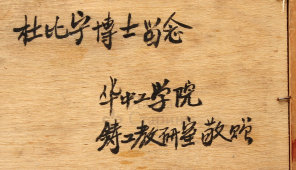 杜比宁博士留念
华中工学院
铸工教研室敬赠